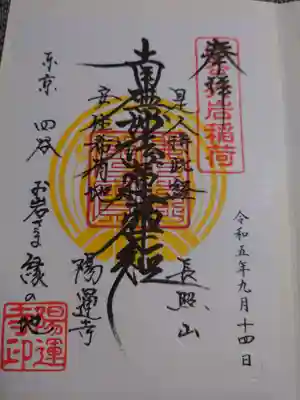 奉拝
岩稲荷
令和五年九月十四日
是人持此経
安住希有地
長照山
陽運寺
東京 四谷 お岩さま縁の地
陽運寺印